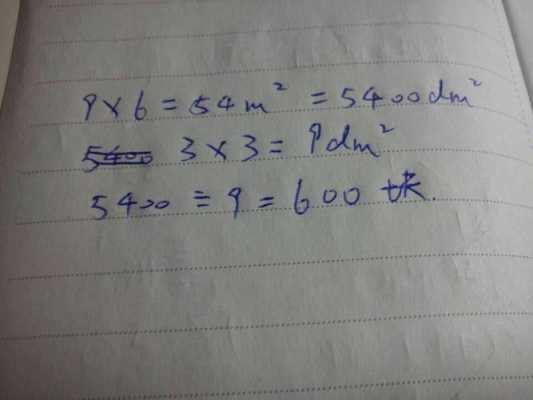 9×6=54m²=5400dm²
5400 3×3=9dm²
5400÷9=600块.